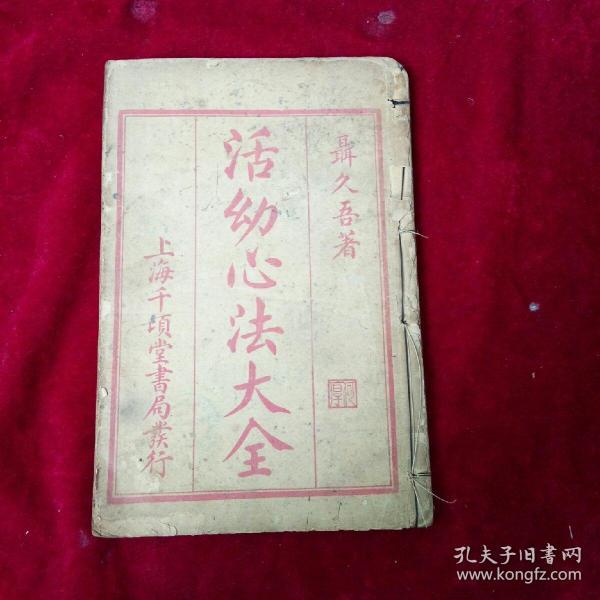 聶久吾著
活幼心法大全
上海千頃堂書局發行
孔夫子旧书网
www.kongfz.com